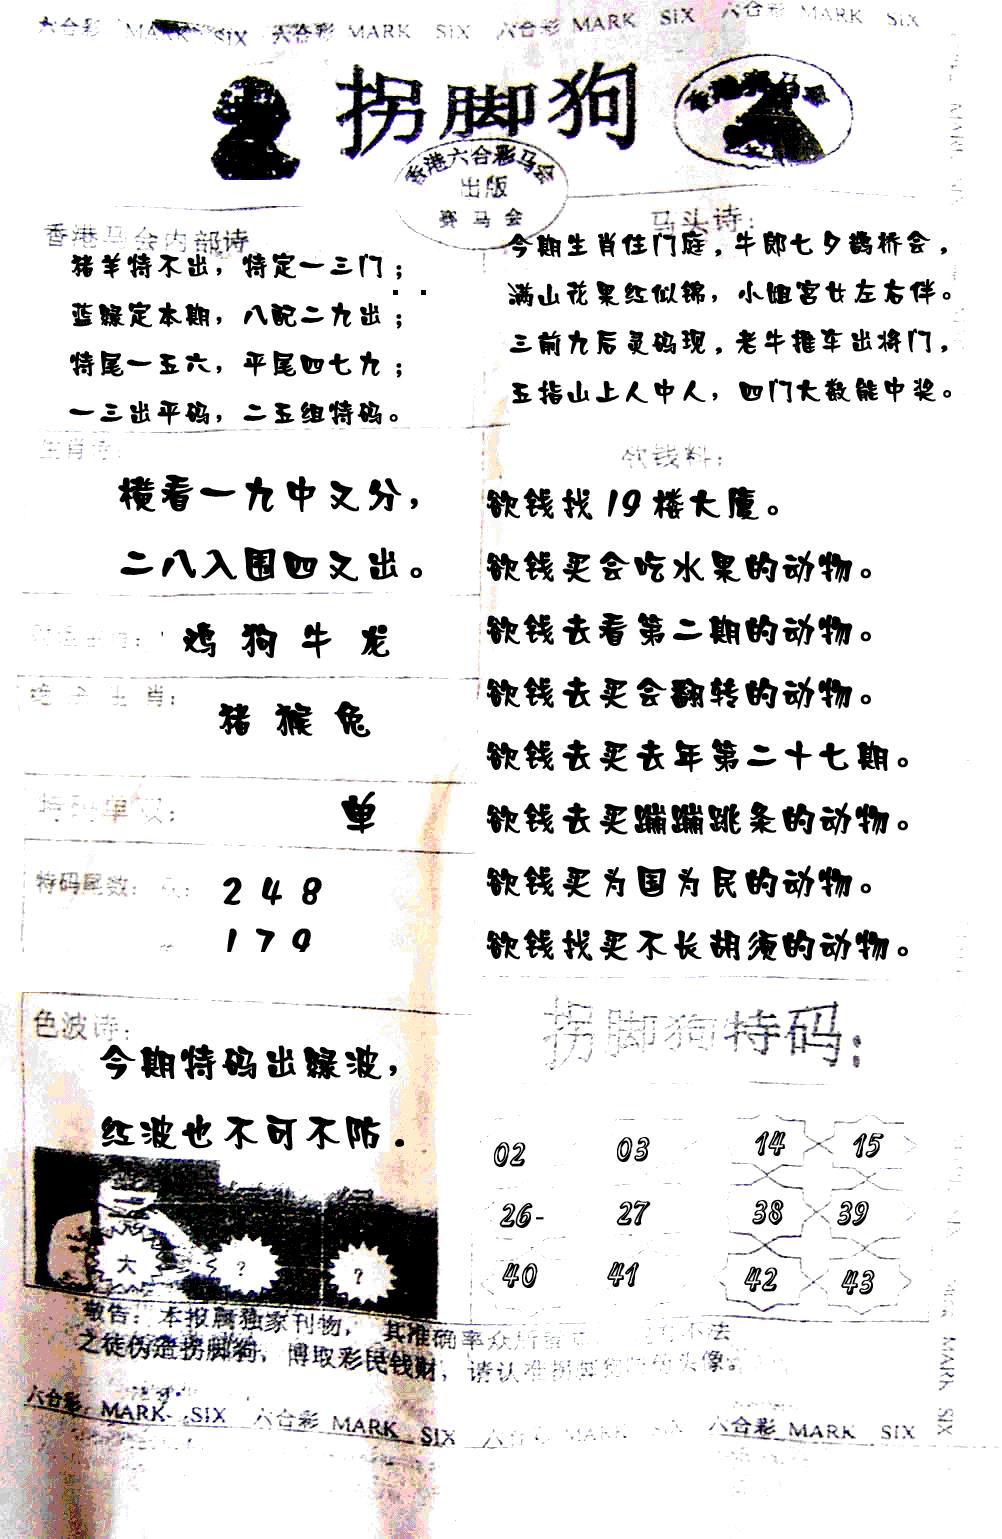 六合彩 MARK SIX 六合彩 MARK SIX 六合彩 MARK SIX 六合彩 MARK SIX
拐脚狗
香港六合彩马会
出版
赛马会
香港马会内部诗
猪羊特不出，特定一三门；
蓝绿定本期，八配二九出；
特尾一五六，平尾四七九；
一三出平码，二五组特码。
马头诗：
今期生肖住门庭，牛郎七夕鹊桥会，
满山花果红似锦，小姐宫女左右伴。
三前九后灵码现，老牛推车出将门，
五指山上人中人，四门大数能中奖。
生肖诗：
横看一九中又分，
二八入围四又出。
鸡 狗 牛 龙
绝杀生肖：
猪 猴 兔
特码单双：
单
特码尾数：
2 4 8
1 7 9
欲钱料：
欲钱找19楼大厦。
欲钱买会吃水果的动物。
欲钱去看第二期的动物。
欲钱去买会翻转的动物。
欲钱去买去年第二十七期。
欲钱去买蹦蹦跳条的动物。
欲钱买为国为民的动物。
欲钱找买不长胡须的动物。
色波诗：
今期特码出绿波，
红波也不可不防．
大 ？ ？
拐脚狗特码：
02 03 14 15
26- 27 38 39
40 41 42 43
敬告：本报属独家刊物，其准确率众所 不法
之徒伪造拐脚狗，博取彩民钱财，请认准拐脚 头像
六合彩 MARK SIX 六合彩 MARK SIX 六合彩 MARK SIX 六合彩 MARK SIX
MARK SIX